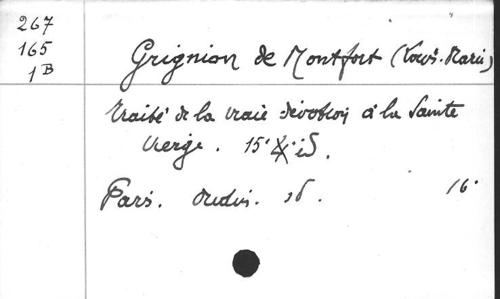 267
165
1 B
Grignion de Montfort (Louis-Marie)
Traité de la vraie dévotion à la Sainte
Vierge. 15e
Paris. Oudin. 16°